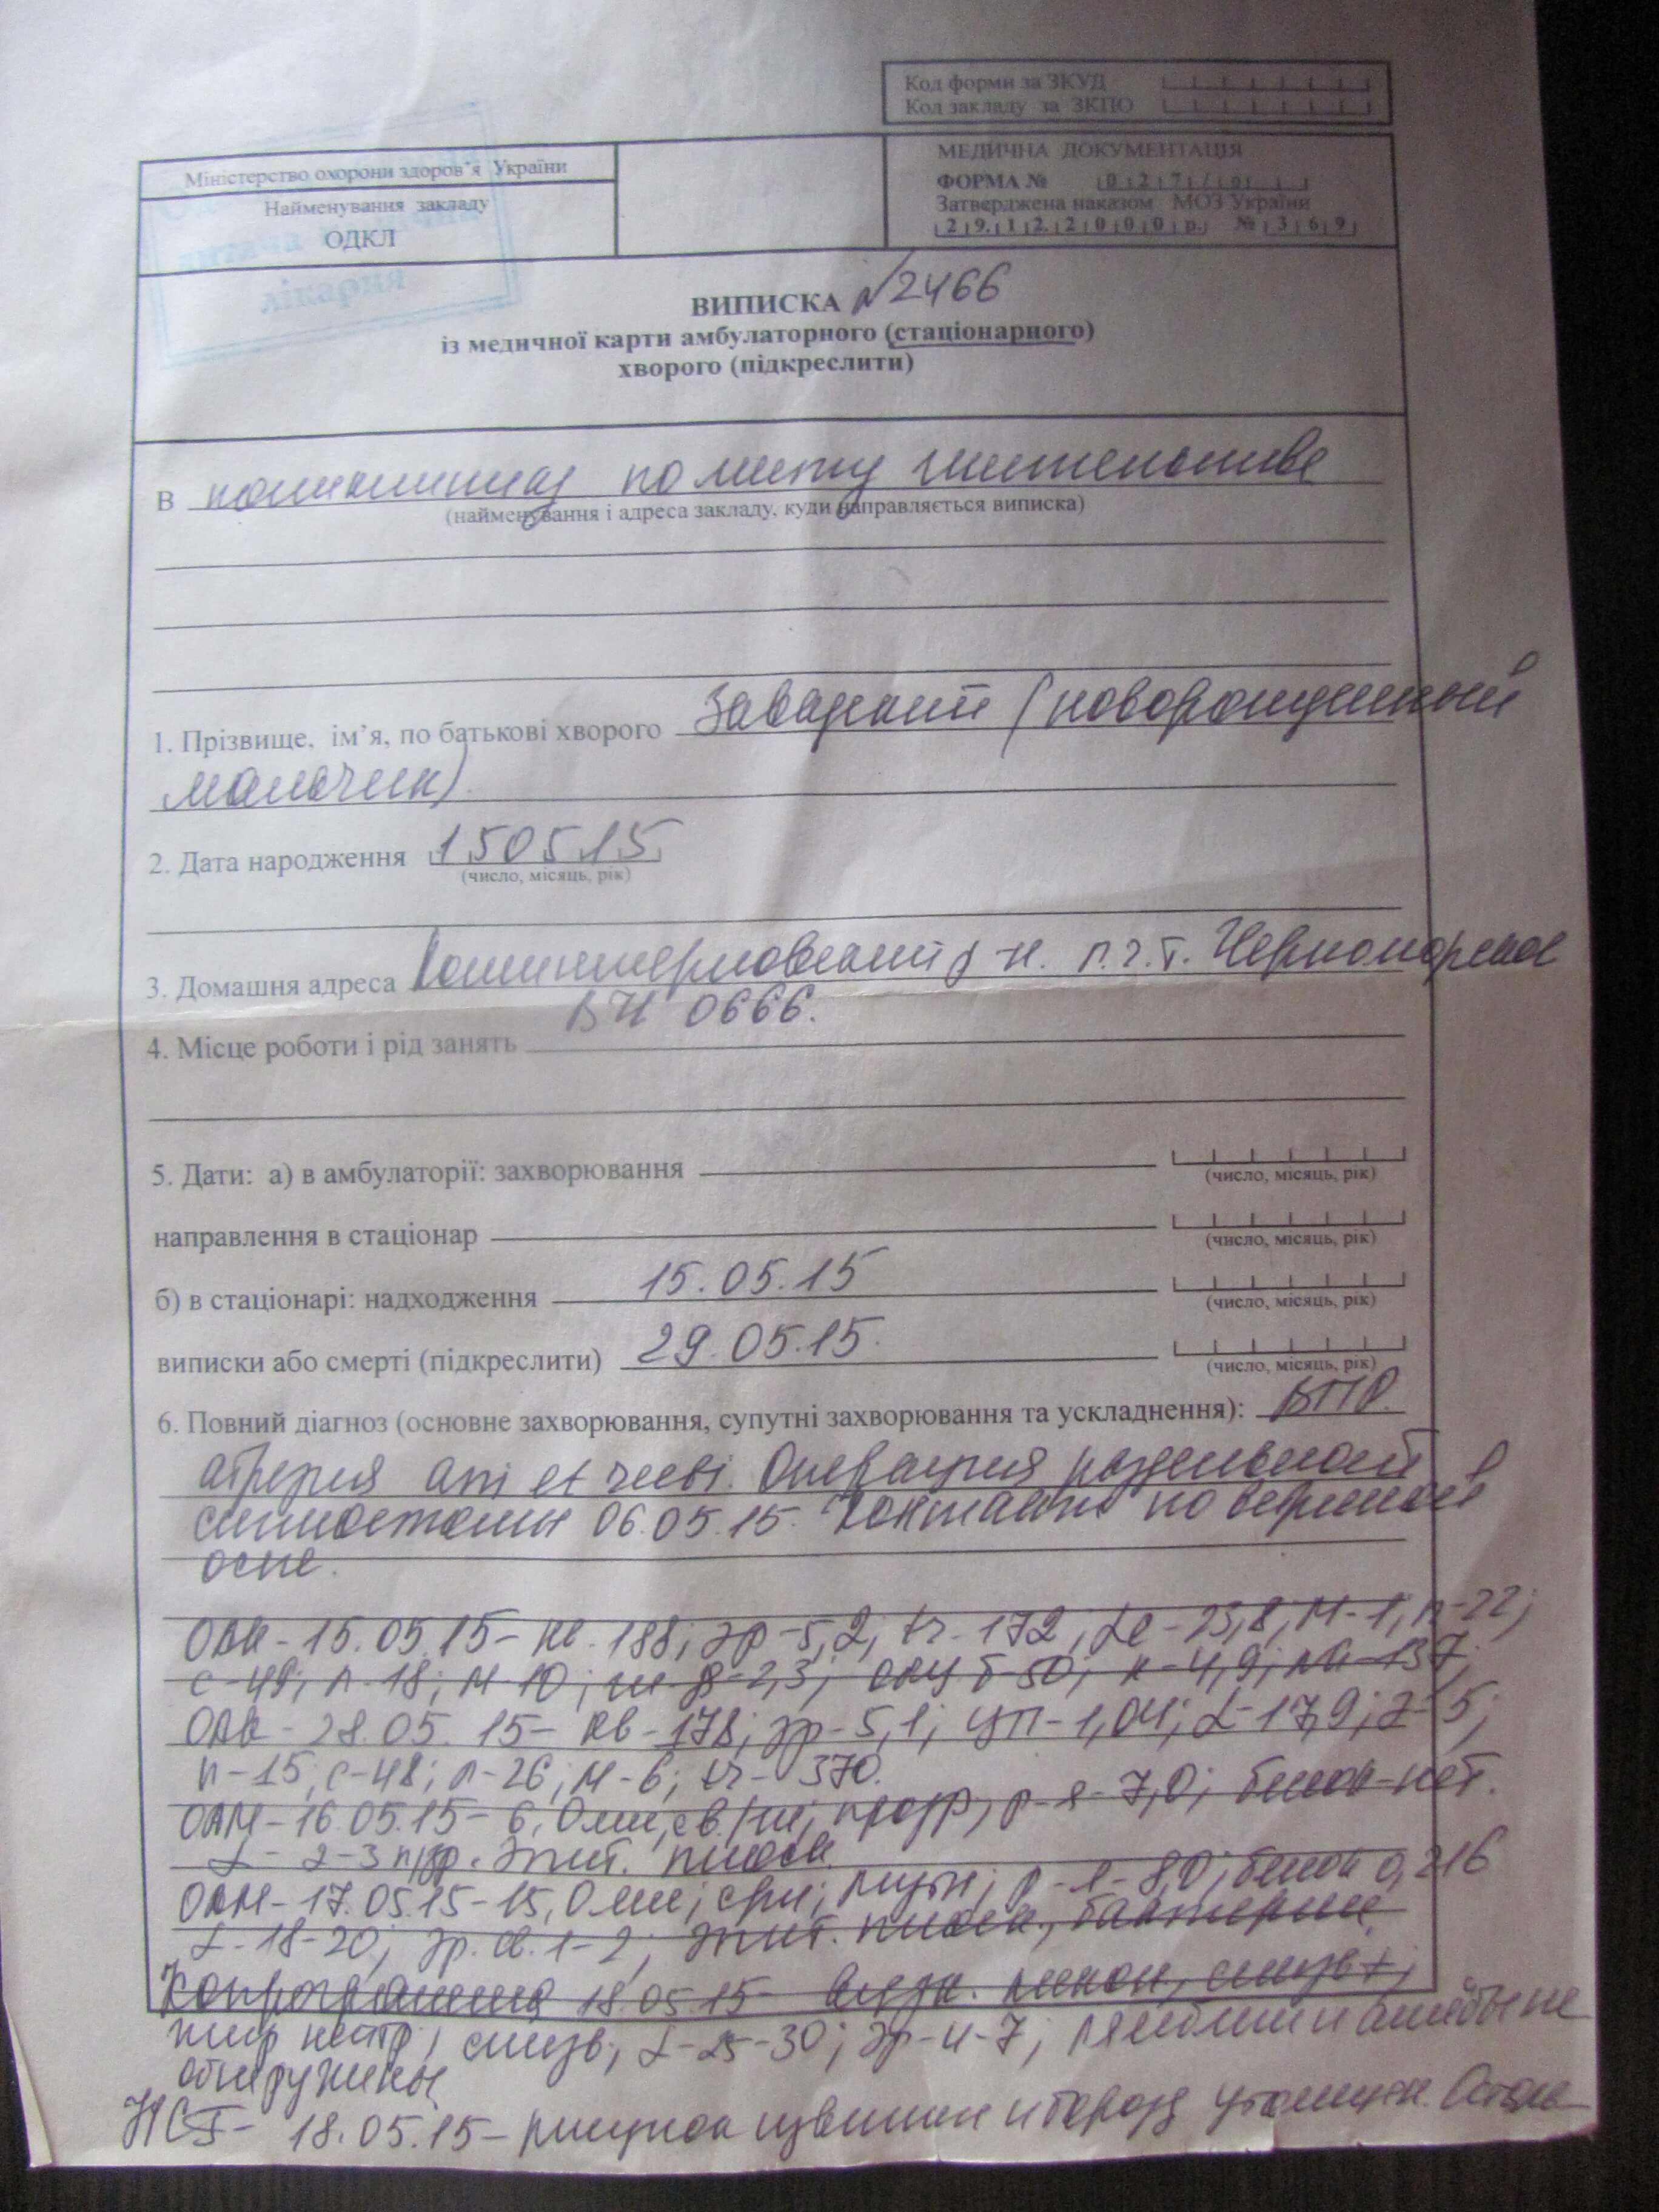 Код форми за ЗКУД
Код закладу за ЗКПО
Міністерство охорони здоров'я України
Найменування закладу
ОДКЛ
лікарня
МЕДИЧНА ДОКУМЕНТАЦІЯ
ФОРМА № 0 2 7 / о
Затверджена наказом МОЗ України
2 9. 1 2. 2 0 0 0 р. № 3 6 9
ВИПИСКА №2466
із медичної карти амбулаторного (стаціонарного)
хворого (підкреслити)
В поликлинику по месту жительства
(найменування і адреса закладу, куди направляється виписка)
1. Прізвище, ім'я, по батькові хворого (новорожденный
мальчик)
2. Дата народження 150515
(число, місяць, рік)
3. Домашня адреса Коминтерновский р-н. п.г.т. Черноморское
ВЧ 0666.
4. Місце роботи і рід занять
5. Дати: а) в амбулаторії: захворювання
(число, місяць, рік)
направлення в стаціонар
(число, місяць, рік)
б) в стаціонарі: надходження 15.05.15
(число, місяць, рік)
виписки або смерті (підкреслити) 29.05.15.
(число, місяць, рік)
6. Повний діагноз (основне захворювання, супутні захворювання та ускладнення): ВПР.
атрезия ani et recti. Операция раздельной
сигмостомы 06.05.15. Контакт по ветряной
оспе.
ОАК - 15.05.15 - Нв - 188; Эр - 5,2; tr - 172; Le - 23,8; М - 1; п - 22;
с - 49; л - 18; м - 10; К - 4,9; Na - 137;
ОАК - 28.05.15 - Нв - 178; Эр - 5,1; ЦП - 1,04; L - 17,9; э - 5;
п - 15; с - 48; л - 26; м - 6; tr - 370.
ОАМ - 16.05.15 - 6,0 мл; св/ж; прозр; р-я - 7,0; белок - нет.
L - 2-3 п/зр. Эпит. плоск.
ОАМ - 17.05.15 - 15,0 мл; мутн; р-я - 8,0; белок 0,216
L - 18-20; Эр. св. 1-2; Эпит. плоск., бактерии
Копрограмма 18.05.15 - слизь +;
жир нейтр; слизь; L - 25-30; Эр - 4-7; лямблии и амёбы не
обнаружены
НСГ - 18.05.15 - рисунок извилин и борозд утолщен. Осталь-